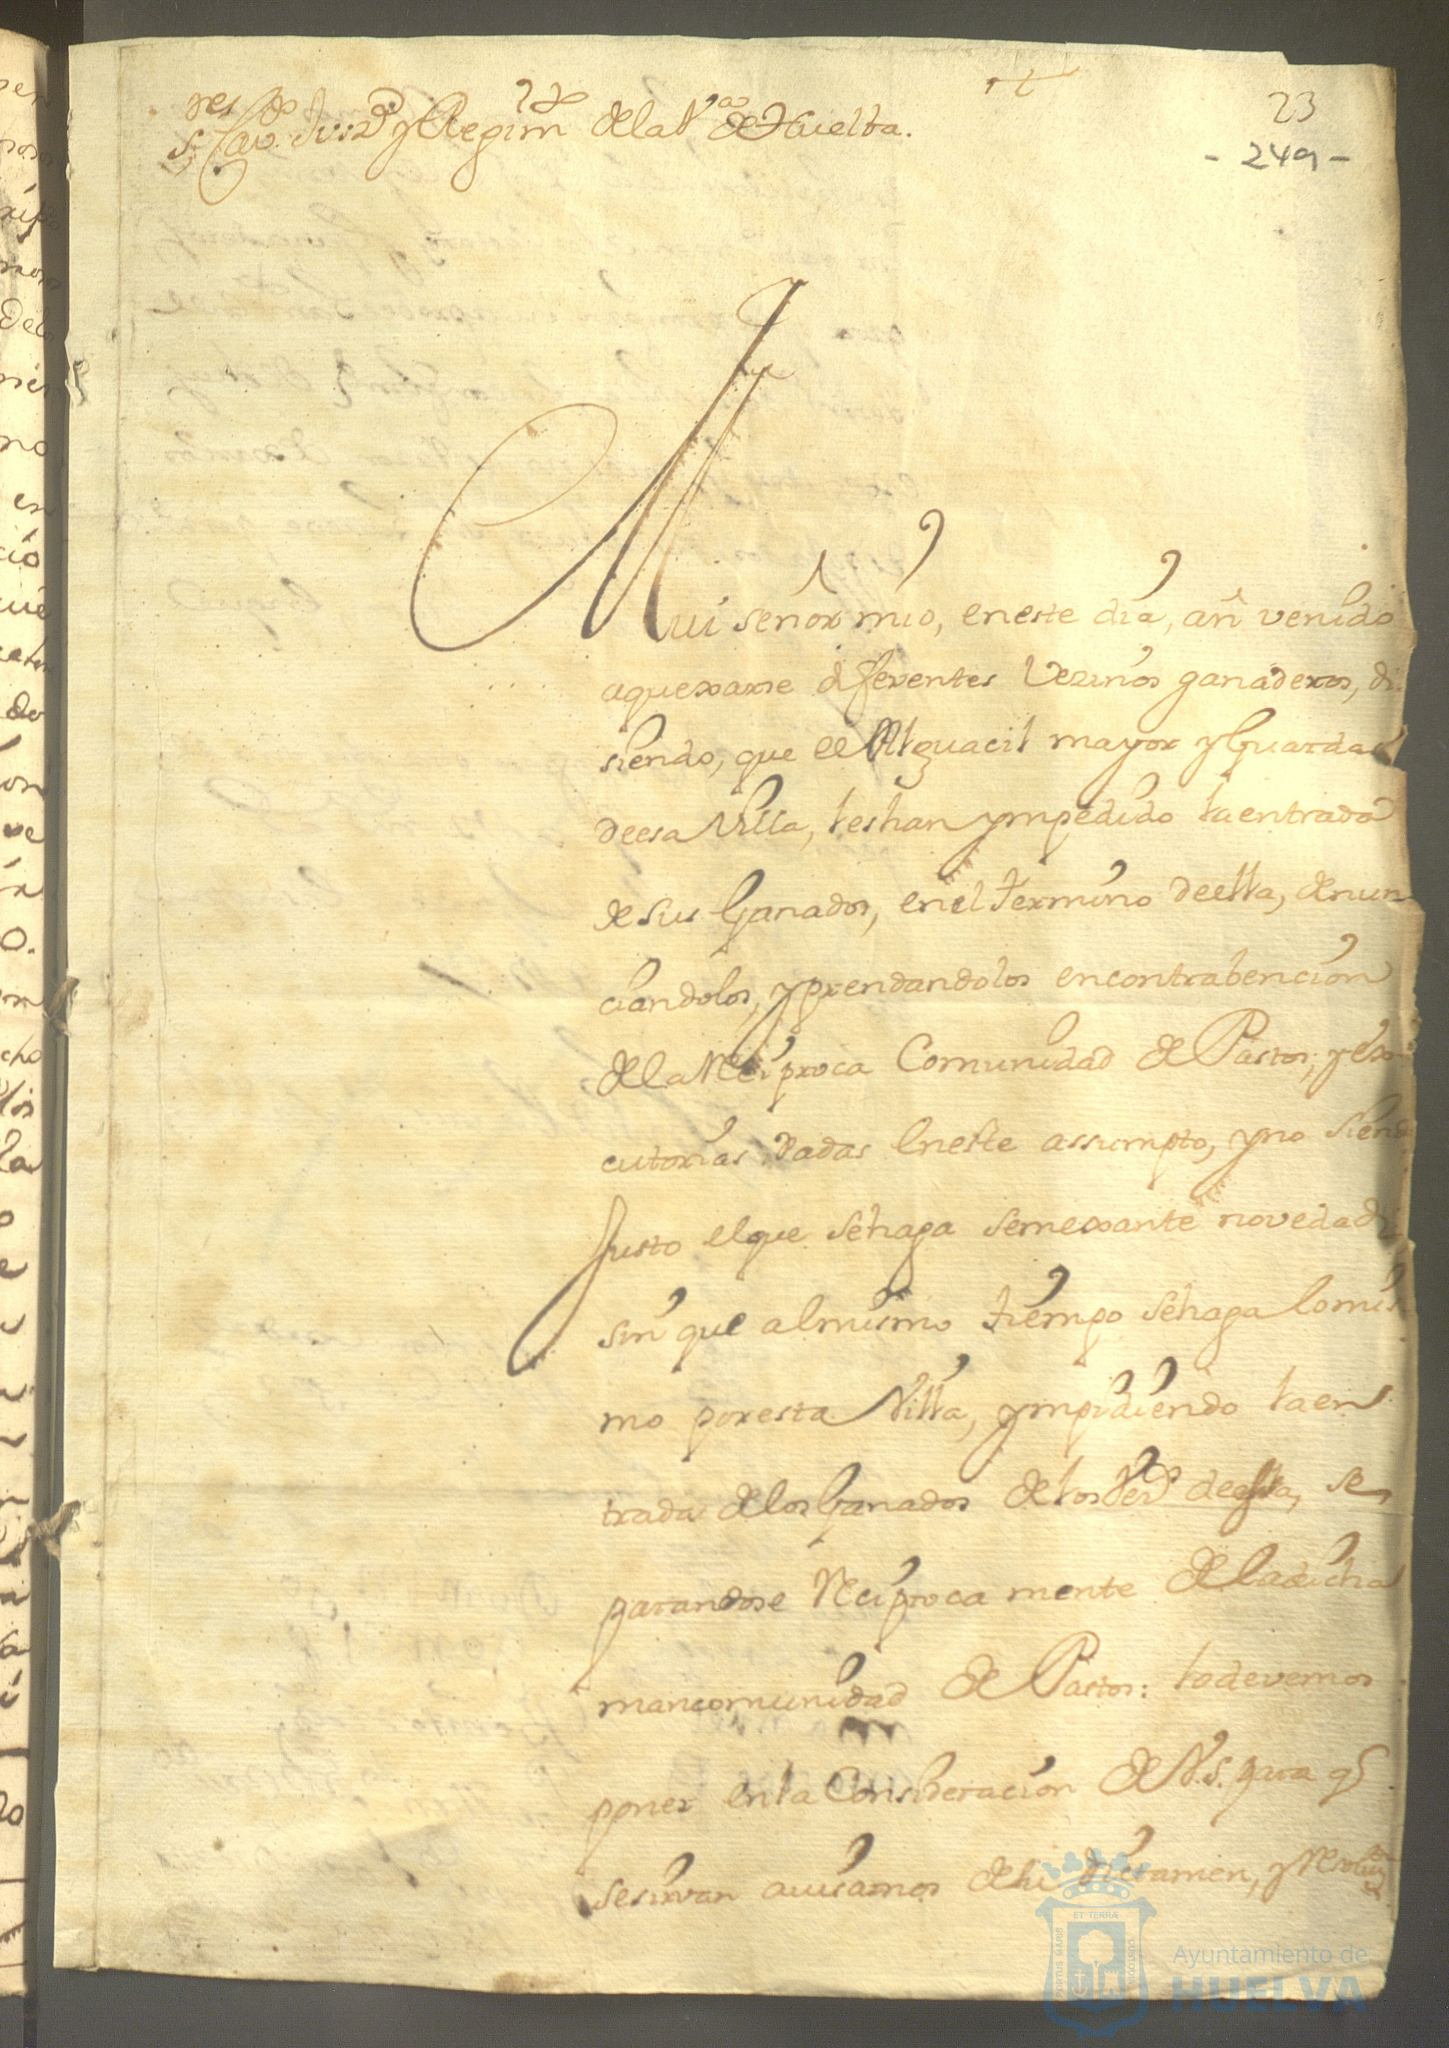 23
- 249 -
s.res Cav.do Jus.a y Regim.to de la V.a de Huelba.
Mui señor mio, en este dia, an venido
a quexarse diferentes Vezinos ganaderos, di
siendo, que el Alguacil mayor y Guardas
de esa Villa, les han ympedido la entrada
de sus Ganados, en el termino de ella, denun
ciandolos, y prendandolos en contrabencion
de la Reciproca Comunidad de Pastos; y exe
cutorias dadas En este assumpto, y no siend
Justo el que se haga semexante novedad
sin que al mismo tiempo se haga lo mis
mo por esta Villa, ympidiendo la en
trada de los Ganados de los Vez.os de esa, se
parandose Reciproca mente de la dicha
mancomunidad de Pastos: lo devemos
poner en la Consideracion de V.S. para q.e
se sirvan avisarnos de su dictamen, y
ET TERRÆ
Ayuntamiento de
HUELVA